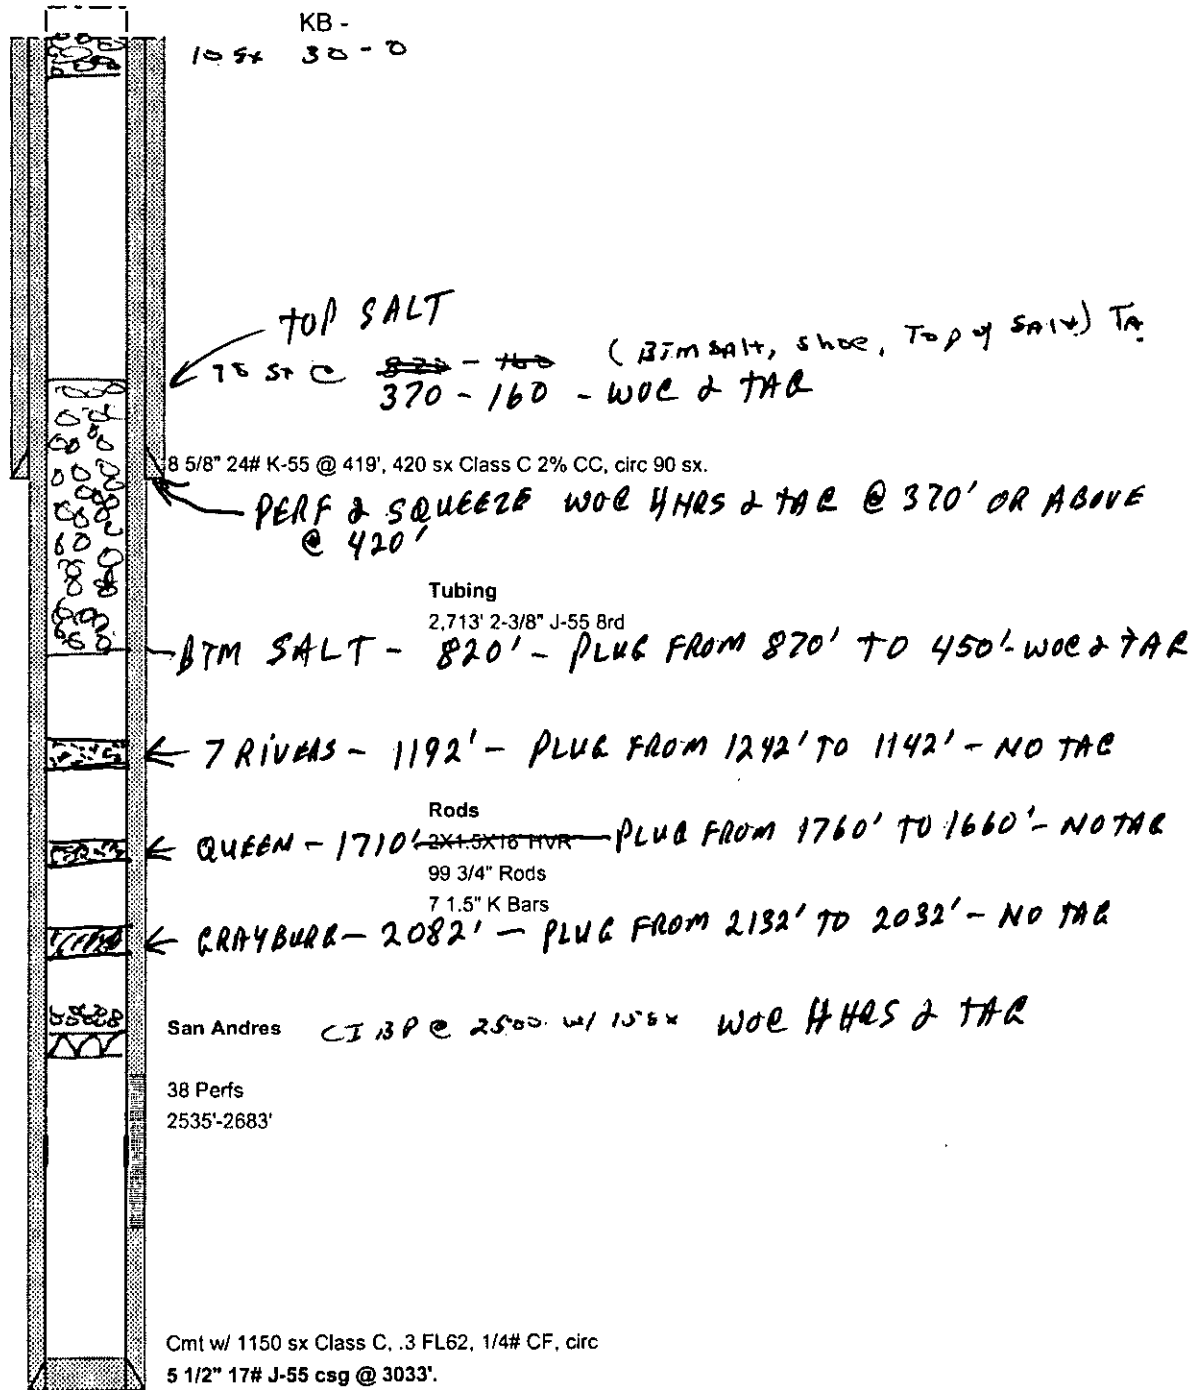 KB -
10 sx 30-0
TOP SALT
75 sx @ 820 - 160 (BTM SALT, shoe, Top of SALT) TA
370 - 160 - WOC & TAG
8 5/8" 24# K-55 @ 419', 420 sx Class C 2% CC, circ 90 sx.
PERF & SQUEEZE WOC 4 HRS & TAG @ 370' OR ABOVE
@ 420'
Tubing
2,713' 2-3/8" J-55 8rd
BTM SALT - 820' - PLUG FROM 870' TO 450' - WOC & TAG
7 RIVERS - 1192' - PLUG FROM 1242' TO 1142' - NO TAG
Rods
QUEEN - 1710' 2X1.5X16' HVR PLUG FROM 1760' TO 1660' - NO TAG
99 3/4" Rods
7 1.5" K Bars
GRAYBURG - 2082' - PLUG FROM 2132' TO 2032' - NO TAG
San Andres CIBP @ 2500 w/ 15 sx WOC 4 HRS & TAG
38 Perfs
2535'-2683'
Cmt w/ 1150 sx Class C, .3 FL62, 1/4# CF, circ
5 1/2" 17# J-55 csg @ 3033'.